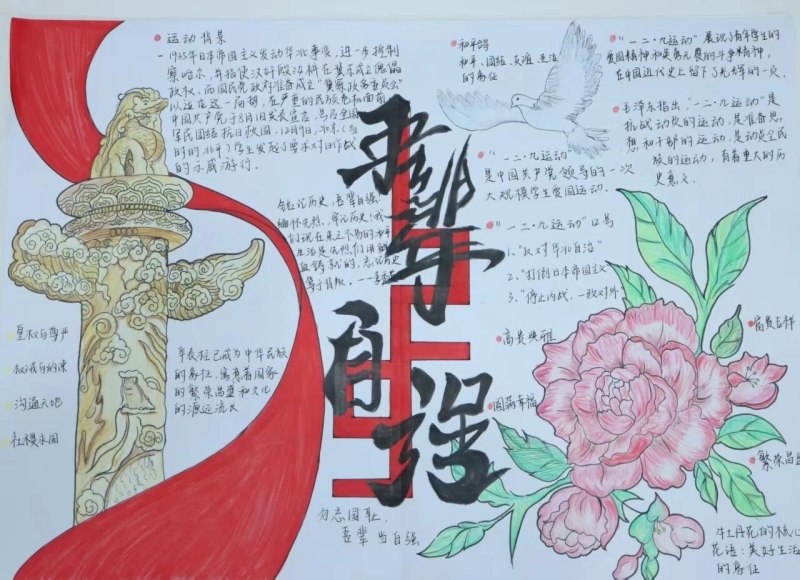 运动背景
1935年日本帝国主义发动华北事变，进一步控制
察哈尔，并指使汉奸殷汝耕在冀东成立傀儡
政权，而国民党政府准备成立“冀察政务委员会”
中国共产党于8月1日发表宣言，号召全国
军民团结抗日救国，12月9日，北京(当
时的北平)学生发起了要求对日作战
的示威游行。
铭记历史，吾辈自强!
缅怀先烈，牢记历史!我
们现在来之不易的和平
生活是先烈们用鲜
血铸就的，忘记历史
等于背叛。
和平鸽
和平、团结、友谊、圣洁
的象征
“一二·九运动”
是中国共产党领导的一次
大规模学生爱国运动。
“一二·九运动”口号
1、“反对华北自治”
2、“打倒日本帝国主义”
3、“停止内战，一致对外”
“一二·九运动”展现了青年学生的
爱国精神和英勇无畏的斗争精神，
在中国近代史上留下了光辉的一页。
毛泽东指出，“一二·九运动”是
抗战动员的运动，是准备思
想和干部的运动，是动员全民
族的运动，有着重大的历
史意义。
吾辈自强
皇权与尊严
权诫与约束
沟通天地
社稷永固
华表柱已成为中华民族
的象征，寓意着国家
的繁荣昌盛和文化
的源远流长
勿忘国耻，
吾辈当自强
高贵典雅
圆满幸福
富贵吉祥
繁荣昌盛
牡丹花的核心
花语：美好生活
的象征